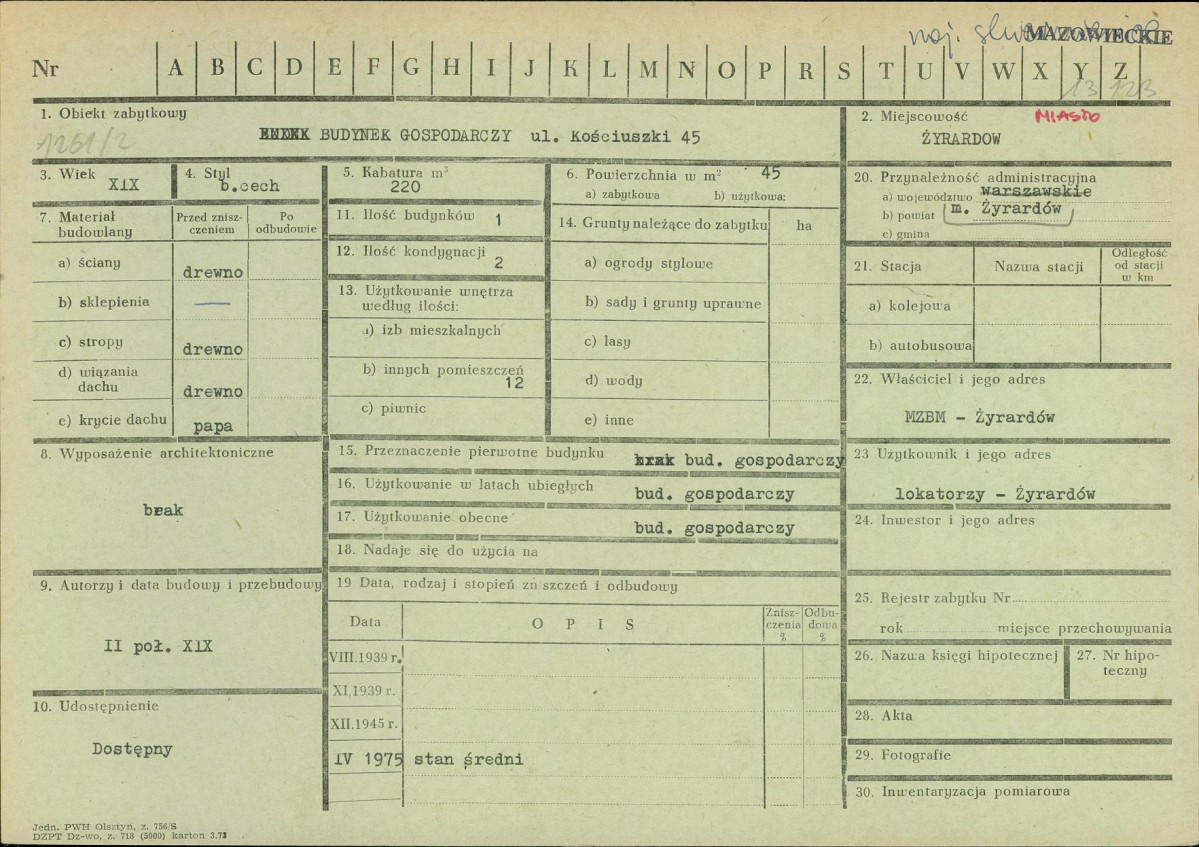 woj.
MAZOWIECKIE
Nr A B C D E F G H I J K L M N O P R S T U V W X Y Z
13 123
1. Obiekt zabytkowy
1261/2
BUDYNEK GOSPODARCZY ul. Kościuszki 45
2. Miejscowość
MIASTO
ŻYRARDOW
3. Wiek
XIX
4. Styl
b.cech
5. Kabatura m³
220
6. Powierzchnia w m² 45
a) zabytkowa b) użytkowa:
20. Przynależność administracyjna
a) województwo warszawskie
b) powiat m. Żyrardów
c) gmina
7. Materiał budowlany
Przed znisz-
czeniem
Po
odbudowie
a) ściany drewno
b) sklepienia —
c) stropy drewno
d) wiązania
dachu drewno
e) krycie dachu papa
11. Ilość budynków 1
12. Ilość kondygnacji 2
13. Użytkowanie wnętrza
według ilości:
a) izb mieszkalnych
b) innych pomieszczeń
12
c) piwnic
14. Grunty należące do zabytku ha
a) ogrody stylowe
b) sady i grunty uprawne
c) lasy
d) wody
e) inne
21. Stacja Nazwa stacji
Odległość
od stacji
w km
a) kolejowa
b) autobusowa
22. Właściciel i jego adres
MZBM - Żyrardów
8. Wyposażenie architektoniczne
brak
15. Przeznaczenie pierwotne budynku bud. gospodarczy
16. Użytkowanie w latach ubiegłych bud. gospodarczy
17. Użytkowanie obecne bud. gospodarczy
18. Nadaje się do użycia na
23 Użytkownik i jego adres
lokatorzy - Żyrardów
24. Inwestor i jego adres
9. Autorzy i data budowy i przebudowy
II poł. XIX
19 Data, rodzaj i stopień zniszczeń i odbudowy
Data OPIS
Znisz-
czenia
%
Odbu-
dowa
%
VIII.1939 r.
XI.1939 r.
XII.1945 r.
IV 1975 stan średni
25. Rejestr zabytku Nr
rok miejsce przechowywania
26. Nazwa księgi hipotecznej
27. Nr hipo-
teczny
10. Udostępnienie
Dostępny
28. Akta
29. Fotografie
30. Inwentaryzacja pomiarowa
Jedn. PWH Olsztyn, z. 756/S
DZPT Dz-wo, z. 718 (5000) karton 3.73